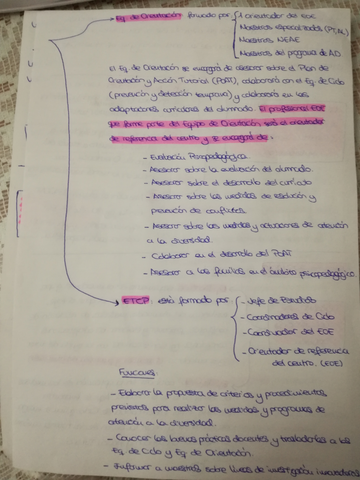 Eq. de Orientación formado por 1 orientador del EOE
Maestros especializados (PT, AL)
Maestros NEAE
Maestros del programa de AD
El Eq. de Orientación se encargará de asesorar sobre el Plan de
Orientación y Acción Tutorial (POAT), colaborará con el Eq. de Ciclo
(prevención y detección temprana) y colaborará en las
adaptaciones curriculares del alumnado. El profesional EOE
que forme parte del Equipo de Orientación será el orientador
de referencia del centro y se encargará de:
- Evaluación Psicopedagógica.
- Asesorar sobre la evaluación del alumnado.
- Asesorar sobre el desarrollo del currículo
- Asesorar sobre las medidas de resolución y
prevención de conflictos.
- Asesorar sobre las medidas y actuaciones de atención
a la diversidad.
- Colaborar en el desarrollo del POAT
- Asesorar a las familias en el ámbito psicopedagógico.
ETCP está formado por - Jefe de Estudios
- Coordinadores de Ciclo
- Coordinador del EOE
- Orientador de referencia
del centro. (EOE)
Funciones.
- Elaborar la propuesta de criterios y procedimientos
previstos para realizar las medidas y programas de
atención a la diversidad.
- Conocer las buenas prácticas docentes y trasladarlas a los
Eq. de Ciclo y Eq. de Orientación.
- Informar a maestros sobre líneas de investigación innovadoras